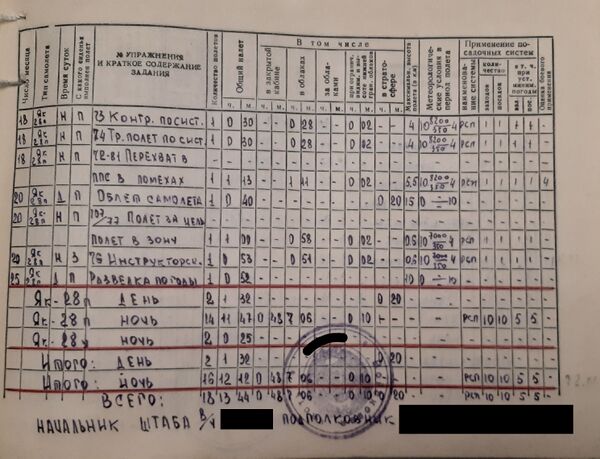 Число месяца
Тип самолета
Время суток
С какого сиденья выполнен полет
№ УПРАЖНЕНИЯ И КРАТКОЕ СОДЕРЖАНИЕ ЗАДАНИЯ
Количество полетов
Общий налет
В том числе
в закрытой кабине
в облаках
за облаками
в стратосфере
Максимальн. высота полета (в км)
Метеорологические условия в период полета
Применение посадочных систем
наименование системы
количество
в т. ч. при уст. миним. погоды
заходов
посадок
зах.
пос.
Оценка боевого применения
ч. м. ч. м. ч. м. ч. м. ч. м. ч. м.
18 Як 28п Н П 73 Контр. по сист. 1 0 30 - - 0 28 - - 0 02 - - 4 10 8200/350 4 РСП 1 1 1 1 -
18 Як 28п Н П 74 Тр. полет по сист. 1 0 30 - - 0 28 - - 0 02 - - 4 10 8200/350 4 РСП 1 1 1 1 -
18 - Н П 72-81 Перехват в
ППС в помехах 1 1 13 - - 1 11 - - 0 02 - - 5,5 10 8200/350 4 РСП 1 1 1 1 4
20 Як 28п Д П Облет самолета 1 0 40 - - - - - - - - 0 20 15 0 ÷ 10 - - - - - -
20 - Н П 107/77 Полет за цель
полет в зону 1 1 00 - - 0 58 - - 0 02 - - 0,6 10 7000/300 4 РСП 1 1
20 Як 28п Н З 76 Инструкторск. 1 0 53 - - 0 51 - - 0 02 - - 0,6 10 4 РСП 1 1
25 Як 28п Д П Разведка погоды 1 0 52 - - - - - - - - - - 10 0 ÷ 10 - - - - - -
Як-28п ДЕНЬ 2 1 32 - - - - - - - - 0 20
Як-28п НОЧЬ 14 11 47 0 48 7 06 - - 0 10 - - РСП 10 10 5 5 -
Як-28у НОЧЬ 2 0 25
Итого: ДЕНЬ 2 1 32 0 20
Итого: НОЧЬ 16 12 12 0 48 7 06 - - 0 10 - - РСП 10 10 5 5 -
ВСЕГО: 18 13 44 0 48 7 06 - - 0 10 0 20 - - РСП 10 10 5 5 -
НАЧАЛЬНИК ШТАБА В/Ч ПОДПОЛКОВНИК